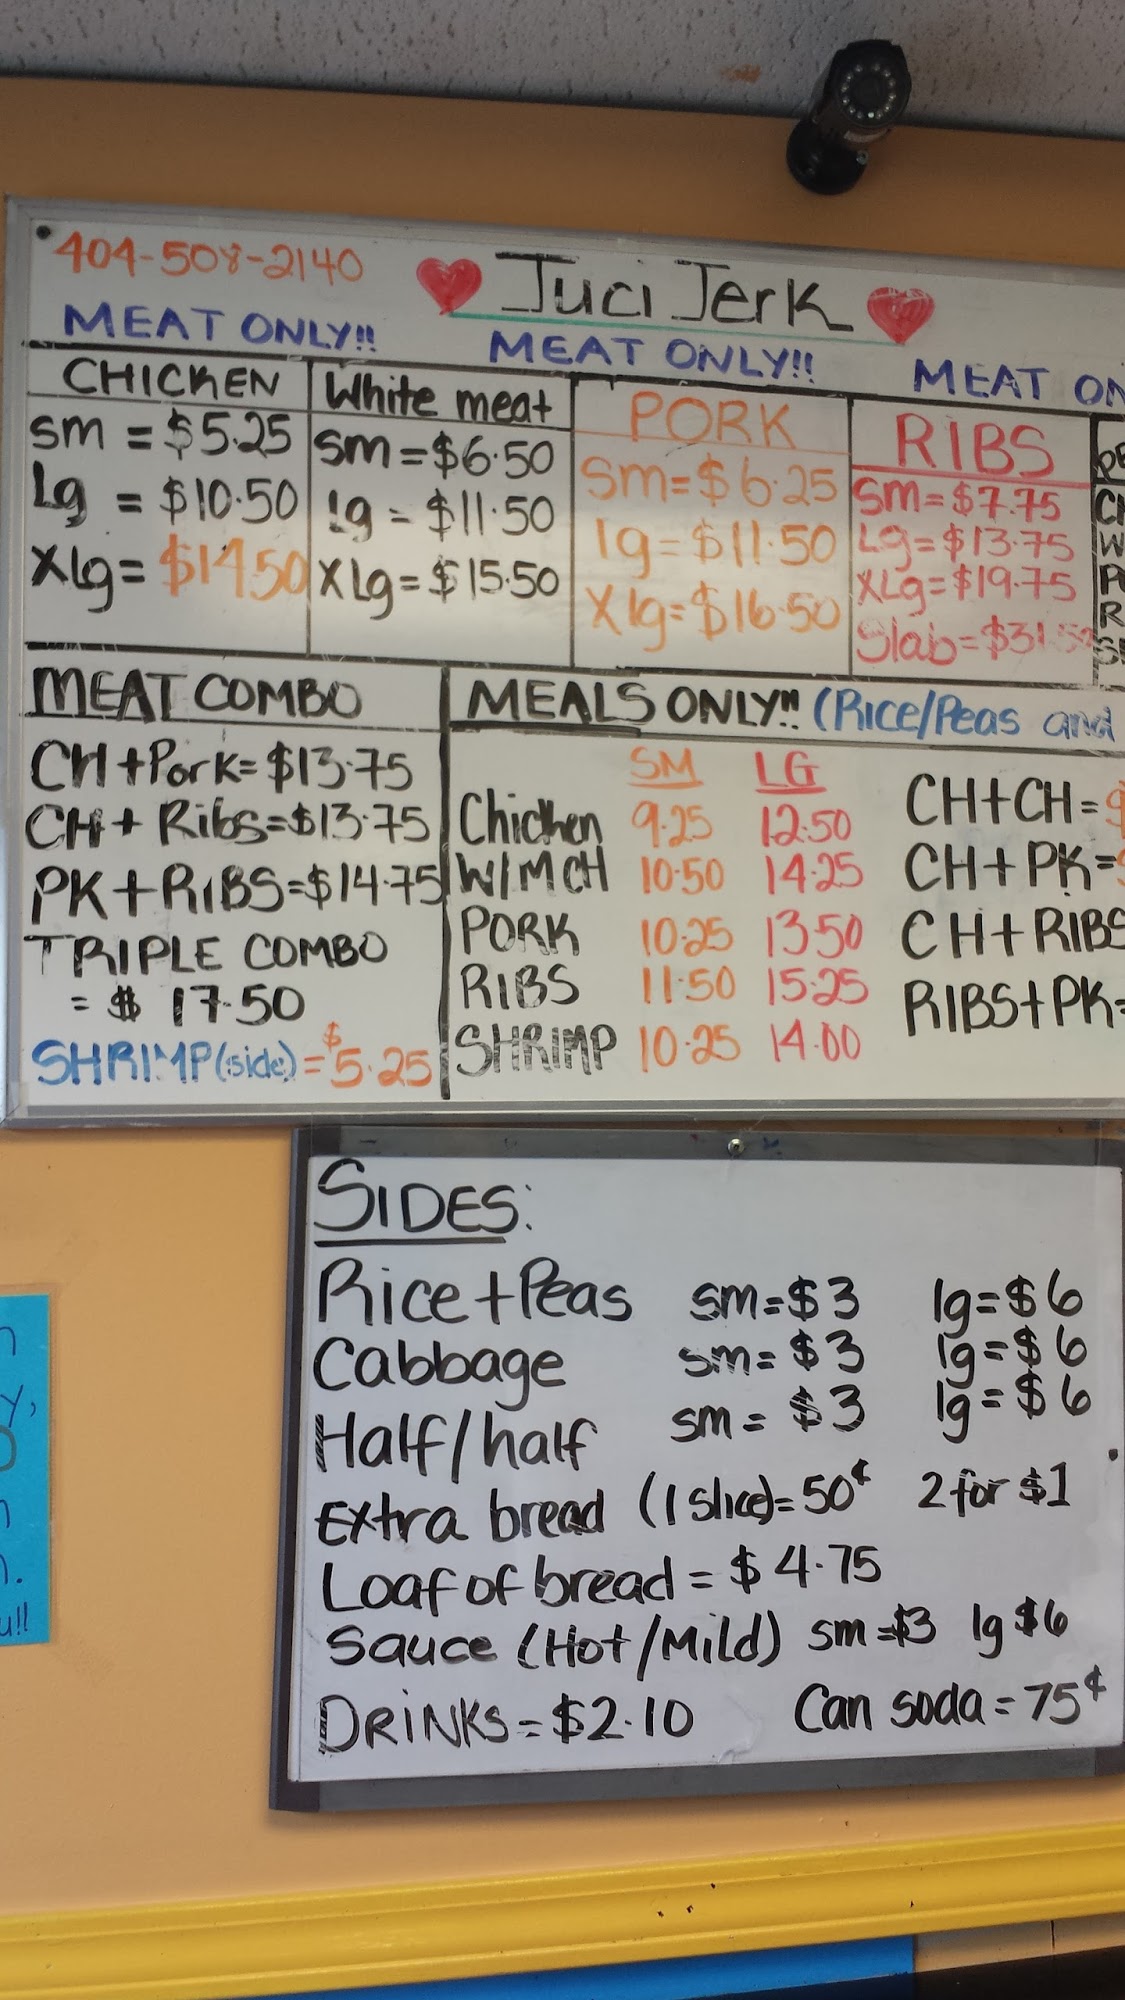 404-508-2140
Juci Jerk
MEAT ONLY!!
MEAT ONLY!!
MEAT ON
CHICKEN
sm = $5.25
Lg = $10.50
XLg= $14.50
White meat
sm=$6.50
lg = $11.50
XLg=$15.50
PORK
sm=$6.25
lg=$11.50
Xlg=$16.50
RIBS
sm=$7.75
Lg=$13.75
XLg=$19.75
Slab=$31.50
MEAT COMBO
CH+Pork=$13.75
CH+Ribs=$13.75
PK+RIBS=$14.75
TRIPLE COMBO
= $ 17.50
SHRIMP(side)=$5.25
MEALS ONLY!! (Rice/Peas and
SM LG
Chicken 9.25 12.50
W/M CH 10.50 14.25
PORK 10.25 13.50
RIBS 11.50 15.25
SHRIMP 10.25 14.00
CH+CH=
CH+PK=
CH+RIBS
RIBS+PK=
SIDES:
Rice+Peas sm=$3 lg=$6
Cabbage sm=$3 lg=$6
Half/half sm=$3 lg=$6
Extra bread (1 slice)=50¢ 2 for $1
Loaf of bread=$4.75
Sauce (Hot/Mild) sm=$3 lg $6
DRINKS=$2.10 Can soda=75¢